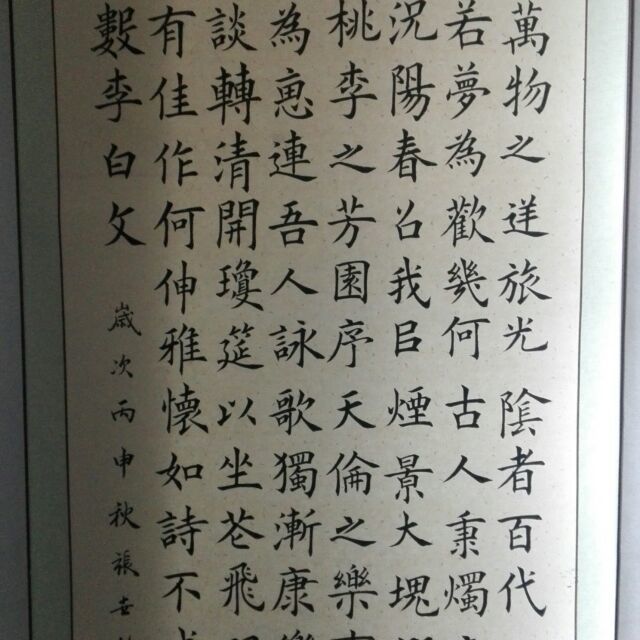 萬物之逆旅光陰者百代
若夢為歡幾何古人秉燭
況陽春召我㠯煙景大塊
桃李之芳園序天倫之樂
為惠連吾人詠歌獨漸康
談轉清開瓊筵以坐花飛
有佳作何伸雅懷如詩不
數李白文
歲次丙申秋張